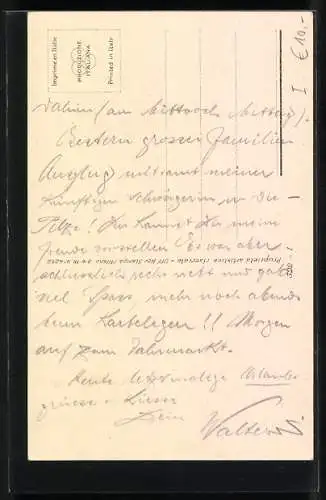 Imprimé en Italie
PRODUZIONE
ITALIANA
Printed in Italy
I € 10,-
(am Mittwoch Mittag).
Gestern grosser Familien
Ausflug mitsamt meiner
künftigen Schwägerin in die
Pilze! Du kannst Dir meine
Freude vorstellen. Es war aber
schliesslich recht nett und gab
viel Spass mehr noch abends
beim Kartelegen!! Morgen
auf zum Jahrmarkt.
Heute letztmalige Urlaubs-
grüsse + Küsse
Dein
Walter
Proprietà artistica riservata